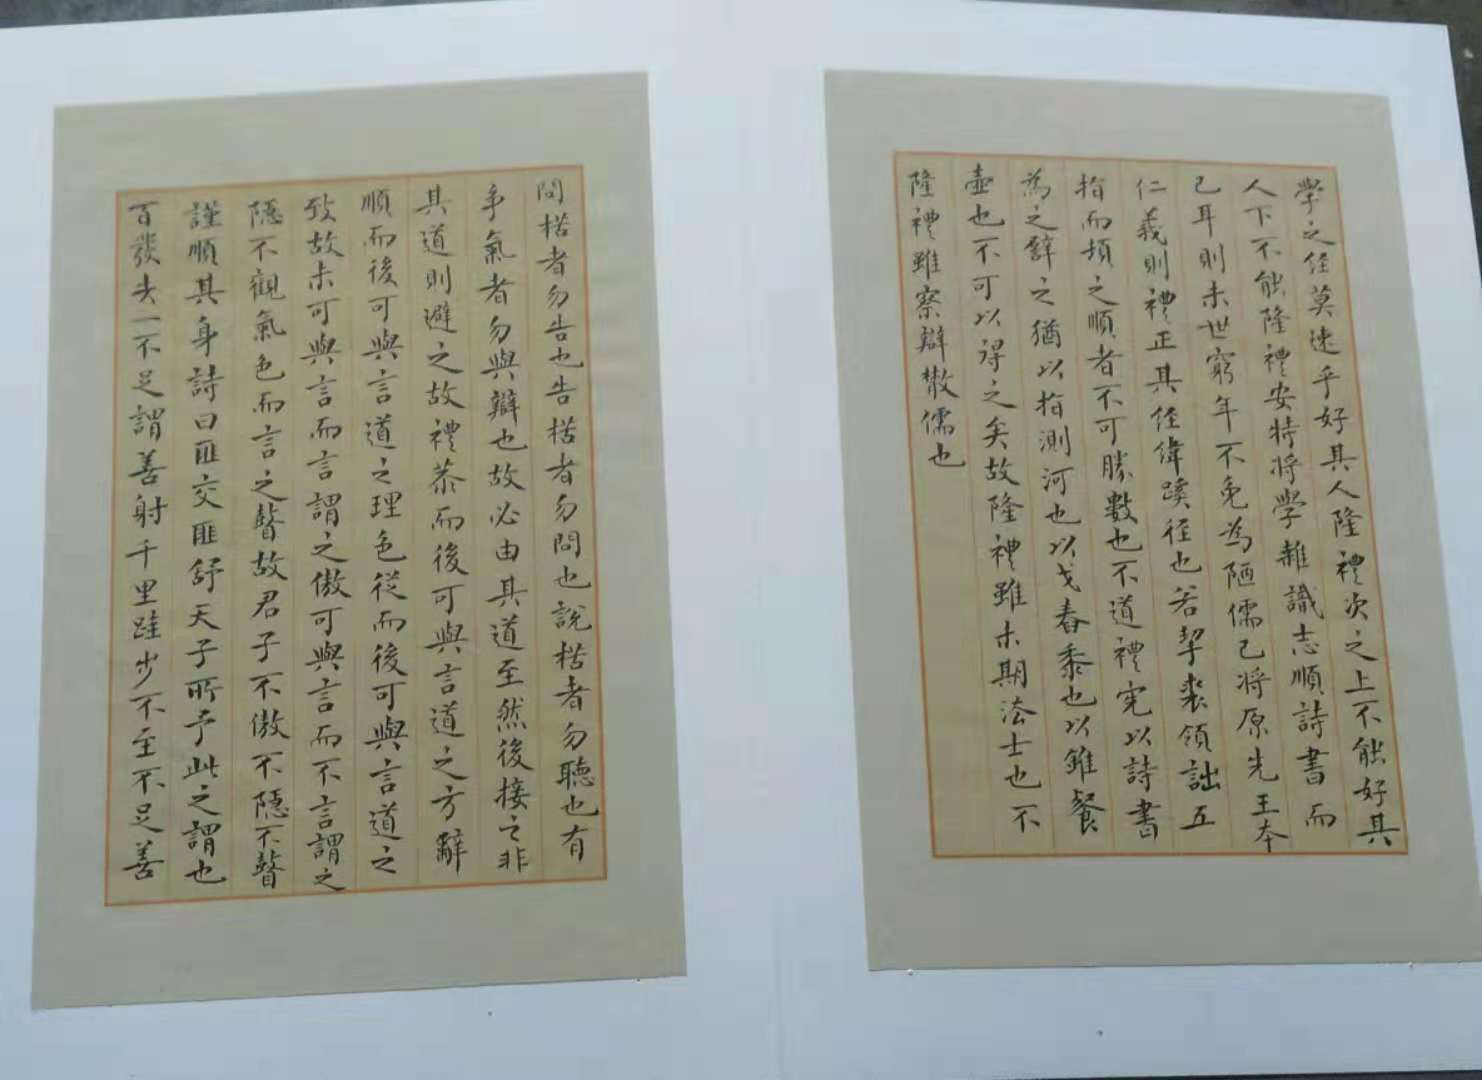 學之徑莫速乎好其人隆禮次之上不能好其
人下不能隆禮安特將學雜識志順詩書而
已耳則末世窮年不免為陋儒已將原先王本
仁義則禮正其經緯蹊徑也若挈裘領詘五
指而頓之順者不可勝數也不道禮憲以詩書
為之辟之猶以指測河也以戈舂黍也以錐餐
壺也不可以得之矣故隆禮雖未期法士也不
隆禮雖察辯散儒也
問楛者勿告也告楛者勿問也說楛者勿聽也有
爭氣者勿與辯也故必由其道至然後接之非
其道則避之故禮恭而後可與言道之方辭
順而後可與言道之理色從而後可與言道之
致故未可與言而言謂之傲可與言而不言謂之
隱不觀氣色而言之瞽故君子不傲不隱不瞽
謹順其身詩曰匪交匪舒天子所予此之謂也
百發失一不足謂善射千里跬步不至不足善